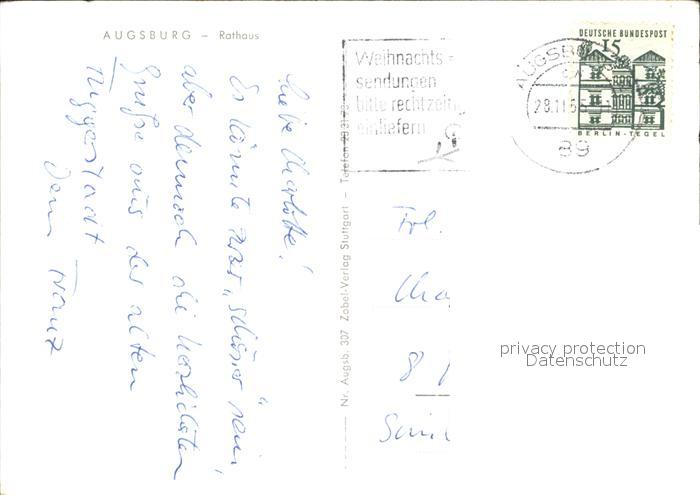 AUGSBURG – Rathaus
Liebe Charlotte!
Es könnte zwar „schöner" sein,
aber dennoch die herzlichsten
Grüße aus der alten
Dein Franz
Nr. Augsb. 307 Zobel-Verlag Stuttgart – Telefon
Weihnachts-
sendungen
bitte rechtzeitig
einliefern
AUGSBURG
28.11.65
89
DEUTSCHE BUNDESPOST
15
BERLIN-TEGEL
Frl.
Cha
8
privacy protection
Datenschutz